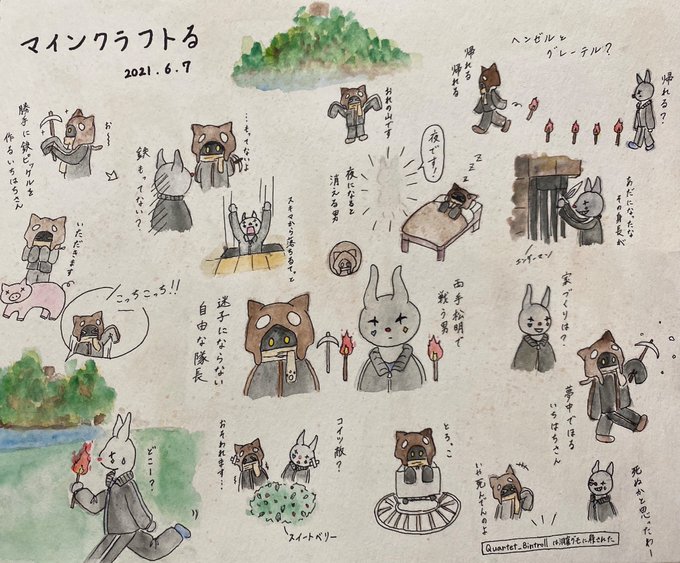 マインクラフトる
2021.6.7
勝手に鉄ピッケルを
作るいちはちさん
お〜
鉄もってない?
…もってないよ
おれの山です
帰れる
帰れる
ヘンゼルと
グレーテル?
帰れる?
いただきます
こっちこっち!!
スキマから落ちるてっと
夜になると
消える男
夜です!
z
z
z
あだになったな
その身長が
エンダーマン
迷子にならない
自由な隊長
両手松明で
戦う男
家づくりは?
夢中でほる
いちはちさん
どこー?
おそわれます…
コイツ敵?
スイートベリー
とろ、こ
いや死んでんのよ
死ぬかと思ったわー
Quartet_8introll は溶